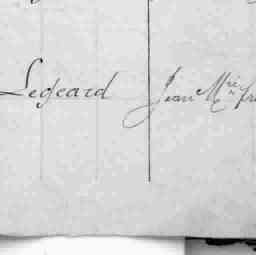 Legeard Jean Mrie